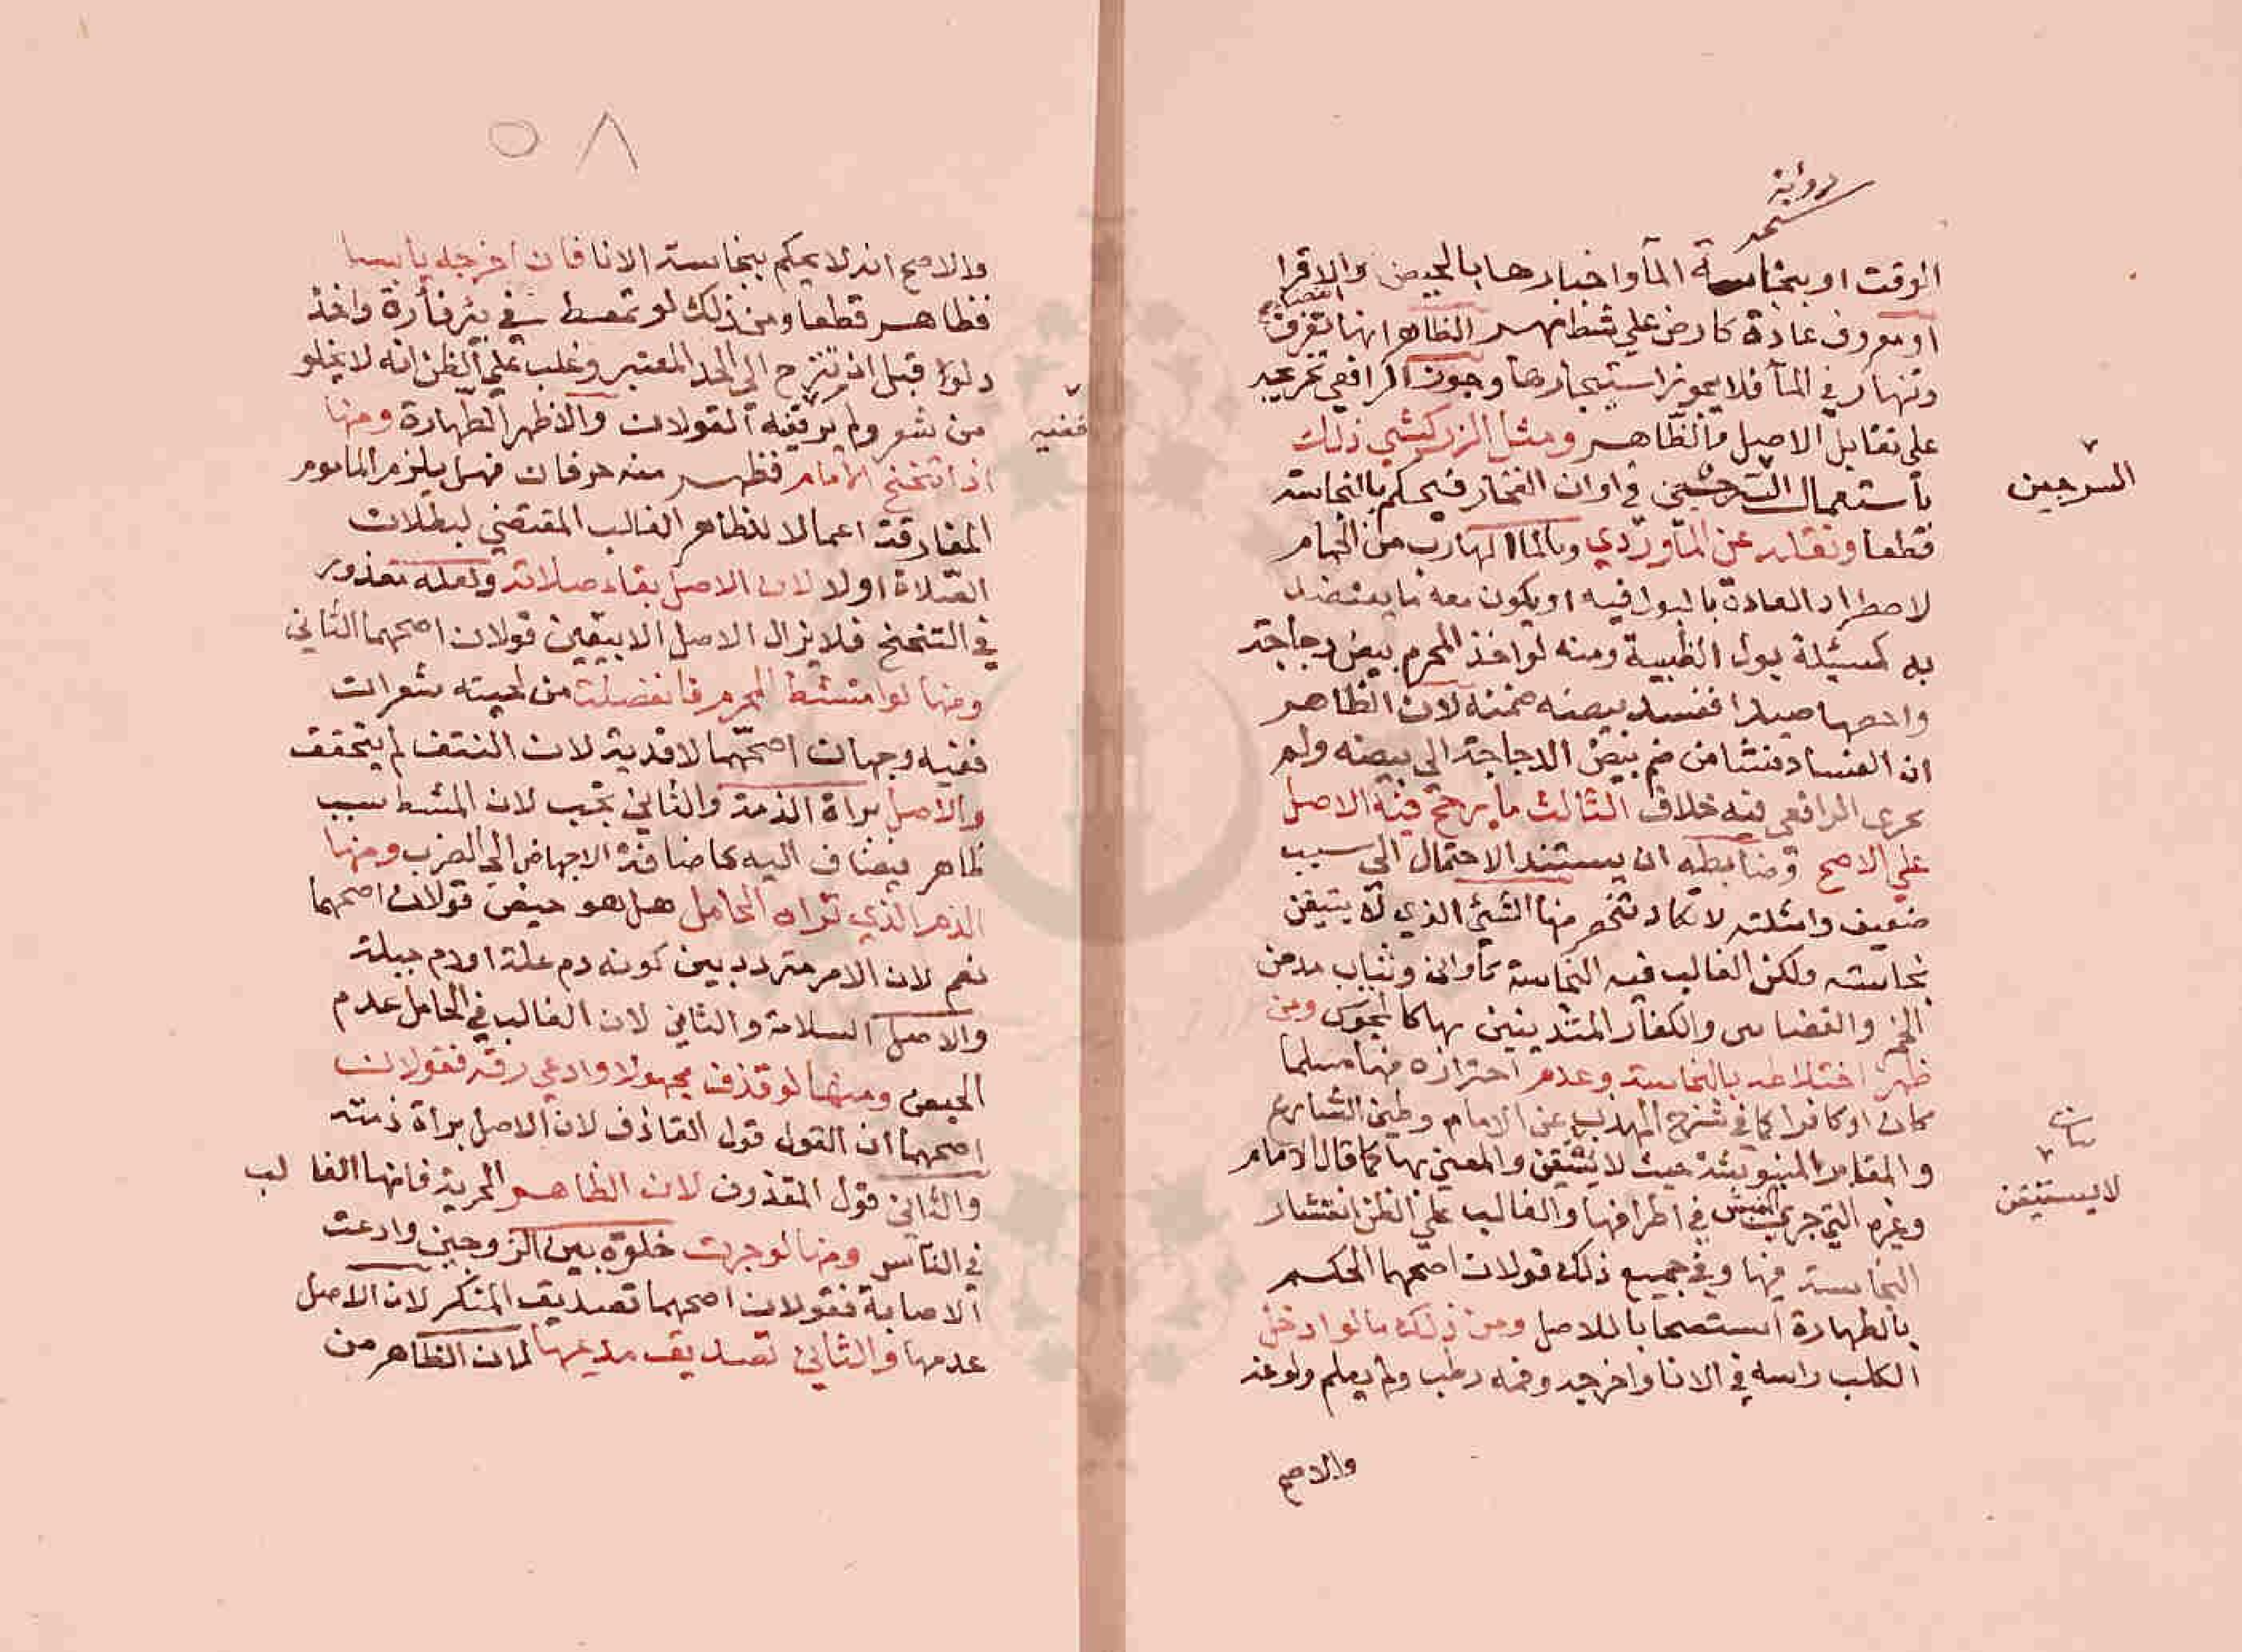 برواية
الوقت او بنجاسة المآ واخبارها بالحيض والاقرا
او معروف عادة كارض على شط نهر الظاهر انها تغرق
وتنهار في المآ فلا يجوز استيجارها وجوز الرافعي تخريجه
على تقابل الاصل والظاهر ومثل الزركشي ذلك
باستعمال السرجين في اوان الفخار فيحكم بالنجاسة
السرجين
قطعا ونقله عن الماوردي وبالماا الهارب من الحمام
لاطراد العادة بالبول فيه او يكون معه ما يعتضد
به كمسئلة بول الظبية ومنه لو اخذ المحرم بيض دجاجة
واحضنها صيدا ففسد بيضه ضمنه لان الظاهر
ان الفساد منشا من ضم بيض الدجاجة الى بيضه ولم
يحرى الرافعي فيه خلاف الثالث ما يرجح فيه الاصل
على الاصح وضابطه ان يستند الاحتمال الى سبب
ضعيف وامثلته لا تكاد تنحصر منها الشئ الذي لا يتيقن
نجاسته ولكن الغالب فيه النجاسة كأواني وثياب مدمن
الخمر والقصابين والكفار المتدينين بها كالمجوس ومن
ظهر اختلاطه بالنجاسة وعدم احترازه منها مسلما
كان او كافرا كما في شرح المهذب عن الامام وطين الشارع
والمقابر المنبوشة حيث لا يتيقن والمعنى بها كما قال الامام
لا يستيقن
وغيره التي جرى النبش في اطرافها والغالب على الظن انتشار
النجاسة فيها وفي جميع ذلك قولان اصحهما الحكم
بالطهارة استصحابا للاصل ومن ذلك ما لو ادخل
الكلب راسه في الانا واخرجه وفمه رطب ولم يعلم ولوغه
والاصح
٥٨
والاصح انه لا يحكم بنجاسة الانا فان اخرجه يابسا
فظاهر قطعا ومن ذلك لو تمعط في بئر فأرة واخذ
دلوا قبل ان ينزح الى الحد المعتبر وغلب على الظن انه لا يخلو
من شعر ولم يره ففيه القولان والاظهر الطهارة ومنها
ففيه
اذا تنحنح الامام فظهر منه حرفان فهل يلزم الماموم
المفارقة اعمالا للظاهر الغالب المقتضي لبطلان
الصلاة او لا لان الاصل بقاء صلاته ولعله معذور
في التنحنح فلا يزال الاصل الا بيقين قولان اصحهما الثاني
ومنها لو امتشط المحرم فانفصلت من لحيته شعرات
ففيه وجهان اصحهما لا فدية لان النتف لم يتحقق
والاصل براة الذمة والثاني تجب لان المشط سبب
ظاهر فيضاف اليه كاضافة الاجهاض الى الضرب ومنها
الدم الذي تراه الحامل هل هو حيض قولان اصحهما
نعم لان الامر متردد بين كونه دم علة او دم جبلة
والاصل السلامة والثاني لان الغالب في الحامل عدم
الحيض ومنها لو قذف مجهولا وادعى رقه فقولان
اصحهما ان القول قول القاذف لان الاصل براة ذمته
والثاني قول المقذوف لان الظاهر الحرية فانها الغالب
في الناس ومنها لو جرت خلوة بين الزوجين وادعت
الاصابة فقولان اصحهما تصديق المنكر لان الاصل
عدمها والثاني تصديق مدعيها لان الظاهر من